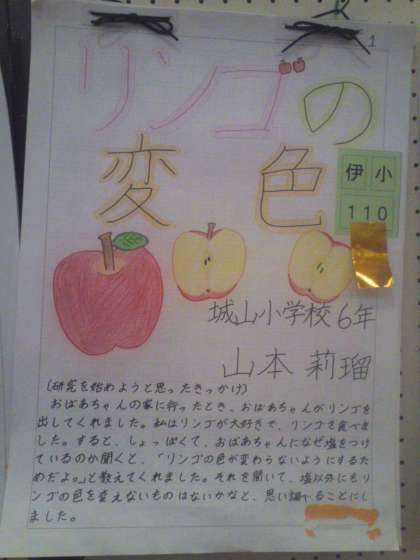 1
リンゴの
変色
伊小
110
城山小学校6年
山本莉瑠
(研究を始めようと思ったきっかけ)
おばあちゃんの家に行ったとき、おばあちゃんがリンゴを
出してくれました。私はリンゴが大好きで、リンゴを食べま
した。すると、しょっぱくて、おばあちゃんになぜ塩をつけ
ているのか聞くと、「リンゴの色が変わらないようにするた
めだよ。」と教えてくれました。それを聞いて、塩以外にもリ
ンゴの色を変えないものはないかなと、思い調べることにし
ました。